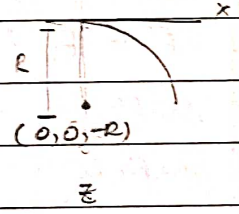 x
R
(0,0,-R)
z